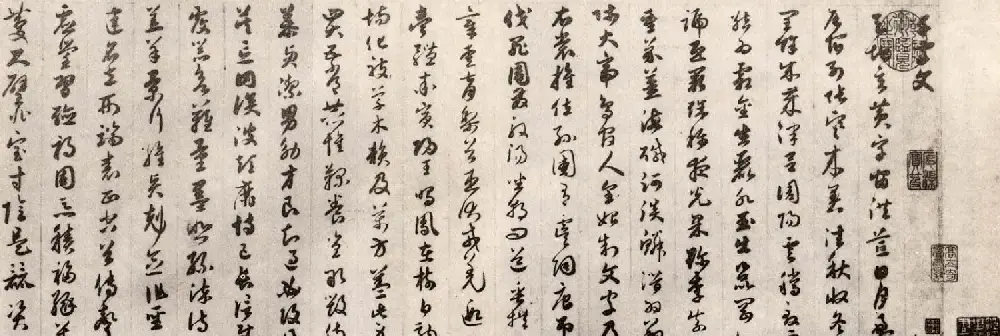 千字文
天地玄黃宇宙洪荒日月盈
辰宿列張寒來暑往秋收冬
閏餘成歲律呂調陽雲騰致
結為霜金生麗水玉出崑岡
號巨闕珠稱夜光果珍李柰
重芥薑海鹹河淡鱗潛羽翔
師火帝鳥官人皇始制文字乃
衣裳推位遜國有虞陶唐弔
伐罪周發殷湯坐朝問道垂拱
章愛育黎首臣伏戎羌遐
壹體率賓歸王鳴鳳在樹白駒
場化被草木賴及萬方蓋此身
四大五常恭惟鞠養豈敢毀傷
慕貞潔男效才良知過必改得
莫忘罔談彼短靡恃己長信使
覆器欲難量墨悲絲染詩
羔羊景行維賢剋念作聖
建名立形端表正空谷傳聲
虛堂習聽禍因惡積福緣善
慶尺璧非寶寸陰是競資